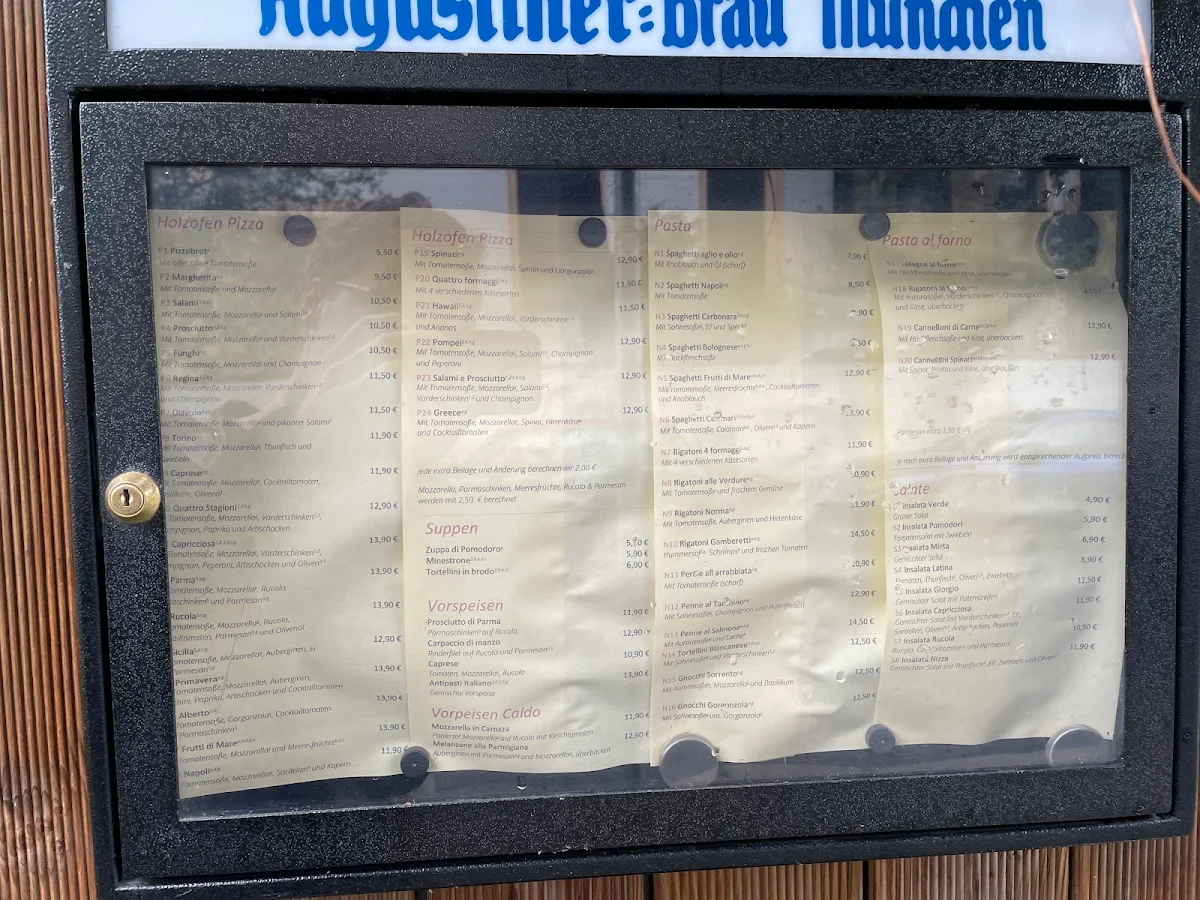 Augustiner-Bräu München
Holzofen Pizza
P1 Pizzabrot 5,50 €
Mit oder ohne Tomatensoße
P2 Margherita 9,50 €
Mit Tomatensoße und Mozzarella
P3 Salami 10,50 €
Mit Tomatensoße, Mozzarella und Salami
P4 Prosciutto 10,50 €
Mit Tomatensoße, Mozzarella und Vorderschinken
Funghi 10,50 €
Mit Tomatensoße, Mozzarella und Champignon
Regina 11,50 €
Mit Tomatensoße, Mozzarella, Vorderschinken
und Champignon
Diavolo 11,50 €
Mit Tomatensoße, Mozzarella und pikanter Salami
P8 Tonno 11,90 €
Mit Tomatensoße, Mozzarella, Thunfisch und
Zwiebeln
Caprese 11,90 €
Tomatensoße, Mozzarella, Cocktailtomaten,
Basilikum, Olivenöl
Quattro Stagioni 12,90 €
Tomatensoße, Mozzarella, Vorderschinken,
Champignon, Paprika und Artischocken
Capricciosa 13,90 €
Tomatensoße, Mozzarella, Vorderschinken,
Champignon, Peperoni, Artischocken und Oliven
Parma 13,90 €
Tomatensoße, Mozzarella, Rucola,
Parmaschinken und Parmesan
Rucola 13,90 €
Tomatensoße, Mozzarella, Rucola,
Cocktailtomaten, Parmesan und Olivenöl
Sicilia 12,90 €
Tomatensoße, Mozzarella, Auberginen, Ei
Parmesan
Primavera 13,90 €
Tomatensoße, Mozzarella, Auberginen,
Paprika, Artischocken und Cocktailtomaten
Alberto 13,90 €
Tomatensoße, Gorgonzola, Cocktailtomaten
Parmaschinken
Frutti di Mare 13,90 €
Tomatensoße, Mozzarella und Meeresfrüchte
Napoli 11,90 €
Tomatensoße, Mozzarella, Sardellen und Kapern
Holzofen Pizza
P19 Spinaci 12,90 €
Mit Tomatensoße, Mozzarella, Spinat und Gorgonzola
P20 Quattro formaggi 13,50 €
Mit 4 verschiedenen Käsesorten
P21 Hawaii 11,50 €
Mit Tomatensoße, Mozzarella, Vorderschinken
und Ananas
P22 Pompei 12,90 €
Mit Tomatensoße, Mozzarella, Salami, Champignon
und Peperoni
P23 Salami e Prosciutto 12,90 €
Mit Tomatensoße, Mozzarella, Salami,
Vorderschinken und Champignon
P24 Greece 12,90 €
Mit Tomatensoße, Mozzarella, Spinat, Hirtenkäse
und Cocktailtomaten
Jede extra Beilage und Änderung berechnen wir 2,00 €
Mozzarella, Parmaschinken, Meeresfrüchte, Rucola & Parmesan
werden mit 2,50 € berechnet
Suppen
Zuppa di Pomodoro 5,90 €
Minestrone 5,90 €
Tortellini in brodo 6,90 €
Vorspeisen
Prosciutto di Parma 11,90 €
Parmaschinken auf Rucola
Carpaccio di manzo 12,90
Rinderfilet auf Rucola und Parmesan
Caprese 10,90 €
Tomaten, Mozzarella, Rucola
Antipasti Italiano 13,90 €
Gemischte Vorspeise
Vorpeisen Caldo
Mozzarella in Carozza 11,90 €
Panierter Mozzarella auf Rucola mit Kirschtomaten
Melanzane alla Parmigiana 12,90 €
Auberginen mit Parmesan und Mozzarella, überbacken
Pasta
N1 Spaghetti aglio e olio 7,90 €
Mit Knoblauch und Öl (scharf)
N2 Spaghetti Napoli 8,50 €
Mit Tomatensoße
N3 Spaghetti Carbonara ,90 €
Mit Sahnesoße, Ei und Speck
N4 Spaghetti Bolognese
Mit Hackfleischsoße
N5 Spaghetti Frutti di Mare 12,90 €
Mit Tomatensoße, Meeresfrüchte, Cocktailtomaten
und Knoblauch
N6 Spaghetti Calamari 13,90 €
Mit Tomatensoße, Calamari, Oliven und Kapern
N7 Rigatoni 4 formaggi 11,90 €
Mit 4 verschiedenen Käsesorten
N8 Rigatoni alle Verdure 10,90 €
Mit Tomatensoße und frischem Gemüse
N9 Rigatoni Norma 11,90 €
Mit Tomatensoße, Auberginen und Hirtenkäse
N10 Rigatoni Gamberetti 14,50 €
Hummersoße, Schrimps und frischen Tomaten
N11 Penne all arrabbiata 10,90 €
Mit Tomatensoße (scharf)
N12 Penne al Tacchino 12,90 €
Mit Sahnesoße, Champignon und Putenfleisch
N13 Penne al Salmone 14,50 €
Mit Aurorasoße und Lachs
N14 Tortellini Biancaneve 12,50 €
Mit Sahnesoße und Vorderschinken
N15 Gnocchi Sorrento 12,50 €
Mit Aurorasoße, Mozzarella und Basilikum
N16 Gnocchi Gorgonzola 12,50 €
Mit Sahnesoße und Gorgonzola
Pasta al forno
Lasagne al forno
Mit Hackfleischsoße und Käse, überbacken
N18 Rigatoni al forno
Mit Aurorasoße, Vorderschinken, Champignon
und Käse, überbacken
N19 Cannelloni di Carne 12,90 €
Mit Hackfleischsoße und Käse, überbacken
N20 Cannelloni Spinaci 12,90 €
Mit Spinat, Ricotta und Käse, überbacken
Parmesan extra 1,90 €
Je nach extra Beilage und Änderung wird entsprechender Aufpreis berechnet
Salate
Insalata Verde 4,90 €
Grüner Salat
S2 Insalata Pomodori 5,90 €
Tomatensalat mit Zwiebeln
S3 Insalata Mista 6,90 €
Gemischter Salat
S4 Insalata Latina 8,90 €
Tomaten, Thunfisch, Oliven, Zwiebeln
Insalata Giorgio 12,50 €
Gemischter Salat mit Putenstreifen
S6 Insalata Capricciosa 11,90 €
Gemischter Salat mit Vorderschinken, Ei,
Sardellen, Oliven, Artischocken, Peperoni
S7 Insalata Rucola 10,90 €
Rucola, Cocktailtomaten und Parmesan
S8 Insalata Nizza 11,90 €
Gemischter Salat mit Thunfisch, Ei, Zwiebeln und Oliven